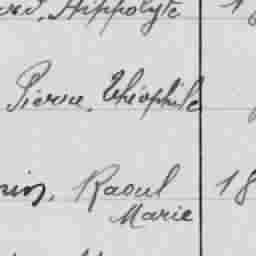 Hippolyte
Pierre, Théophile
Raoul 18
Marie